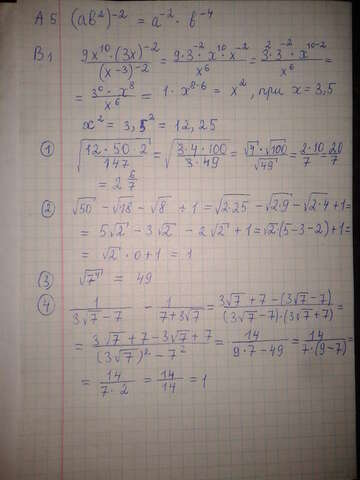 A5 (ab²)⁻² = a⁻² · b⁻⁴
B1 9x¹⁰·(3x)⁻² / (x⁻³)⁻² = 9·3⁻²·x¹⁰·x⁻² / x⁶ = 3²·3⁻²·x¹⁰⁻² / x⁶ =
= 3⁰·x⁸ / x⁶ = 1·x⁸⁻⁶ = x², при x = 3,5
x² = 3,5² = 12,25
① √(12·50·2 / 147) = √(3·4·100 / 3·49) = √4·√100 / √49 = 2·10 / 7 = 20/7
= 2 6/7
② √50 - √18 - √8 + 1 = √(2·25) - √(2·9) - √(2·4) + 1 =
= 5√2 - 3√2 - 2√2 + 1 = √2·(5-3-2)+1 =
= √2·0+1 = 1
③ √7⁴ = 49
④ 1 / (3√7-7) - 1 / (7+3√7) = 3√7+7-(3√7-7) / (3√7-7)·(3√7+7) =
= 3√7+7-3√7+7 / (3√7)²-7² = 14 / 9·7-49 = 14 / 7·(9-7) =
= 14 / 7·2 = 14/14 = 1